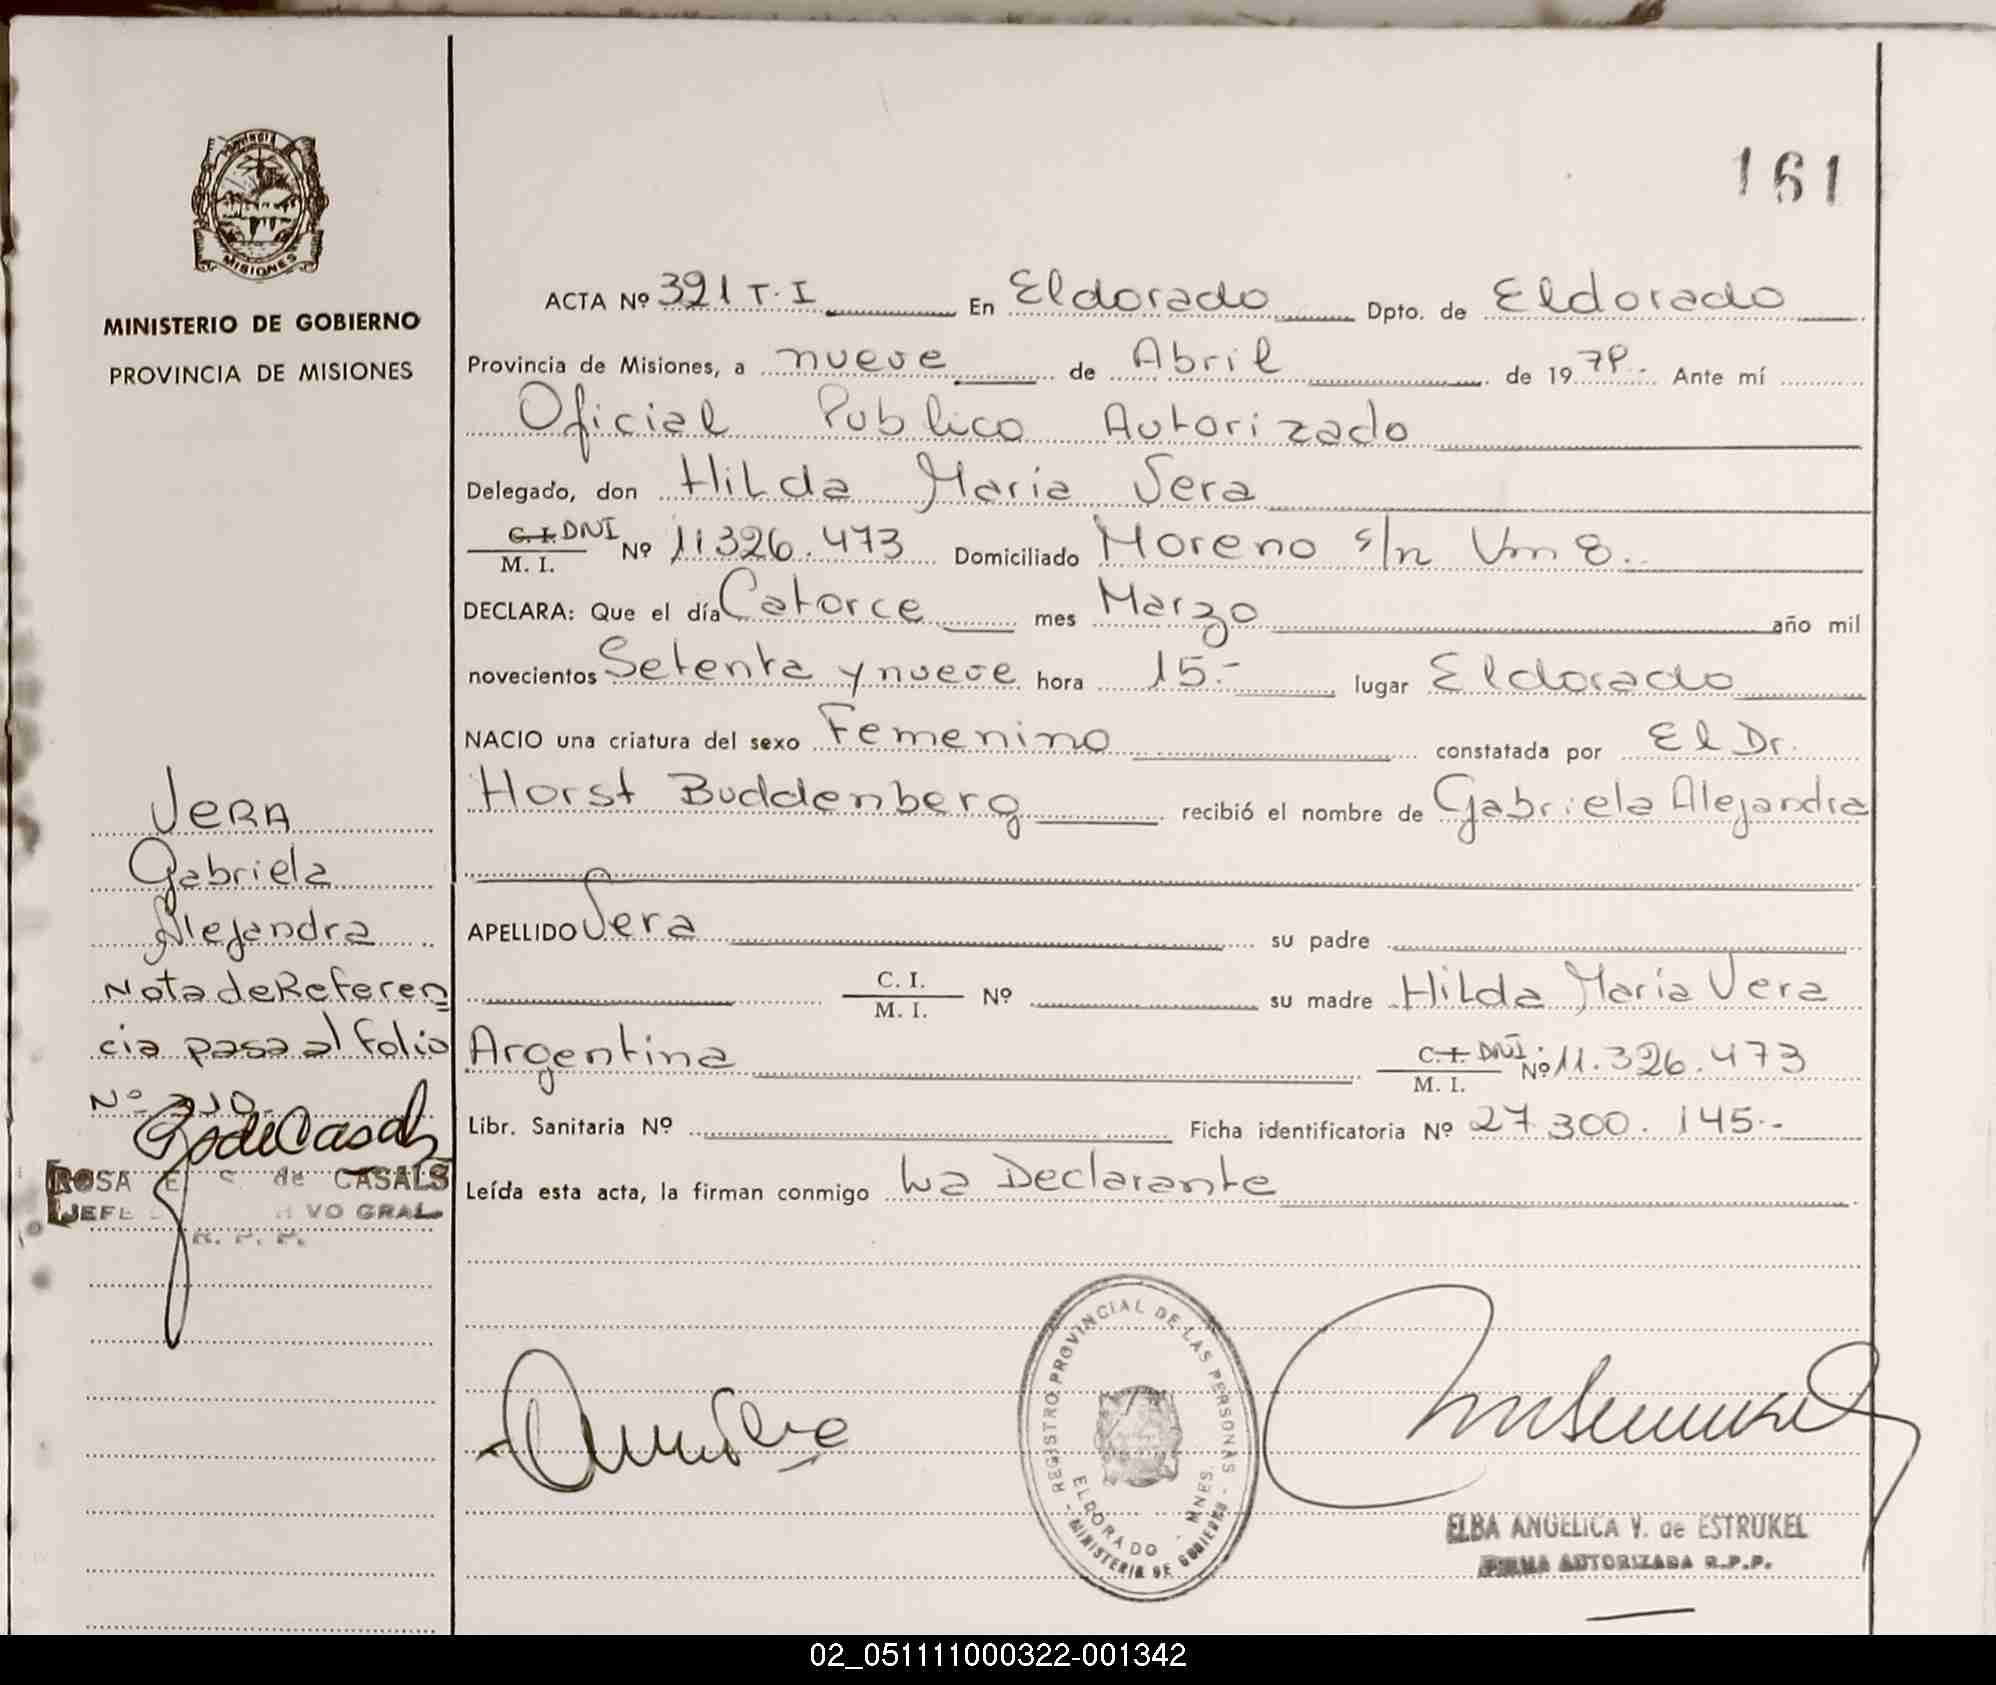 Provincia
MISIONES
MINISTERIO DE GOBIERNO
PROVINCIA DE MISIONES
161
ACTA Nº 321 T.I En Eldorado Dpto. de Eldorado
Provincia de Misiones, a nueve de Abril de 1979. Ante mí
Oficial Publico Autorizado
Delegado, don Hilda María Vera
C. I. DNI
M. I. Nº 11326.473 Domiciliado Moreno s/n Vm 8.
DECLARA: Que el día Catorce mes Marzo año mil
novecientos Setenta y nueve hora 15.- lugar Eldorado
NACIO una criatura del sexo Femenino constatada por El Dr.
Horst Buddenberg recibió el nombre de Gabriela Alejandra
APELLIDO Vera su padre
C. I.
M. I. Nº su madre Hilda María Vera
Argentina C. I. DNI. Nº 11.326.473
M. I.
Libr. Sanitaria Nº Ficha identificatoria Nº 27.300.145.-
Leída esta acta, la firman conmigo La Declarante
VERA
Gabriela
Alejandra
Nota de Referen
cia pasa al folio
Nº
ROSA E. S. de CASALS
JEFE VO GRAL.
R. P. P.
REGISTRO PROVINCIAL DE LAS PERSONAS
ELDORADO - MNES.
- MINISTERIO DE GOBIERNO -
ELBA ANGELICA V. de ESTRUKEL
FIRMA AUTORIZADA R.P.P.
02_051111000322-001342